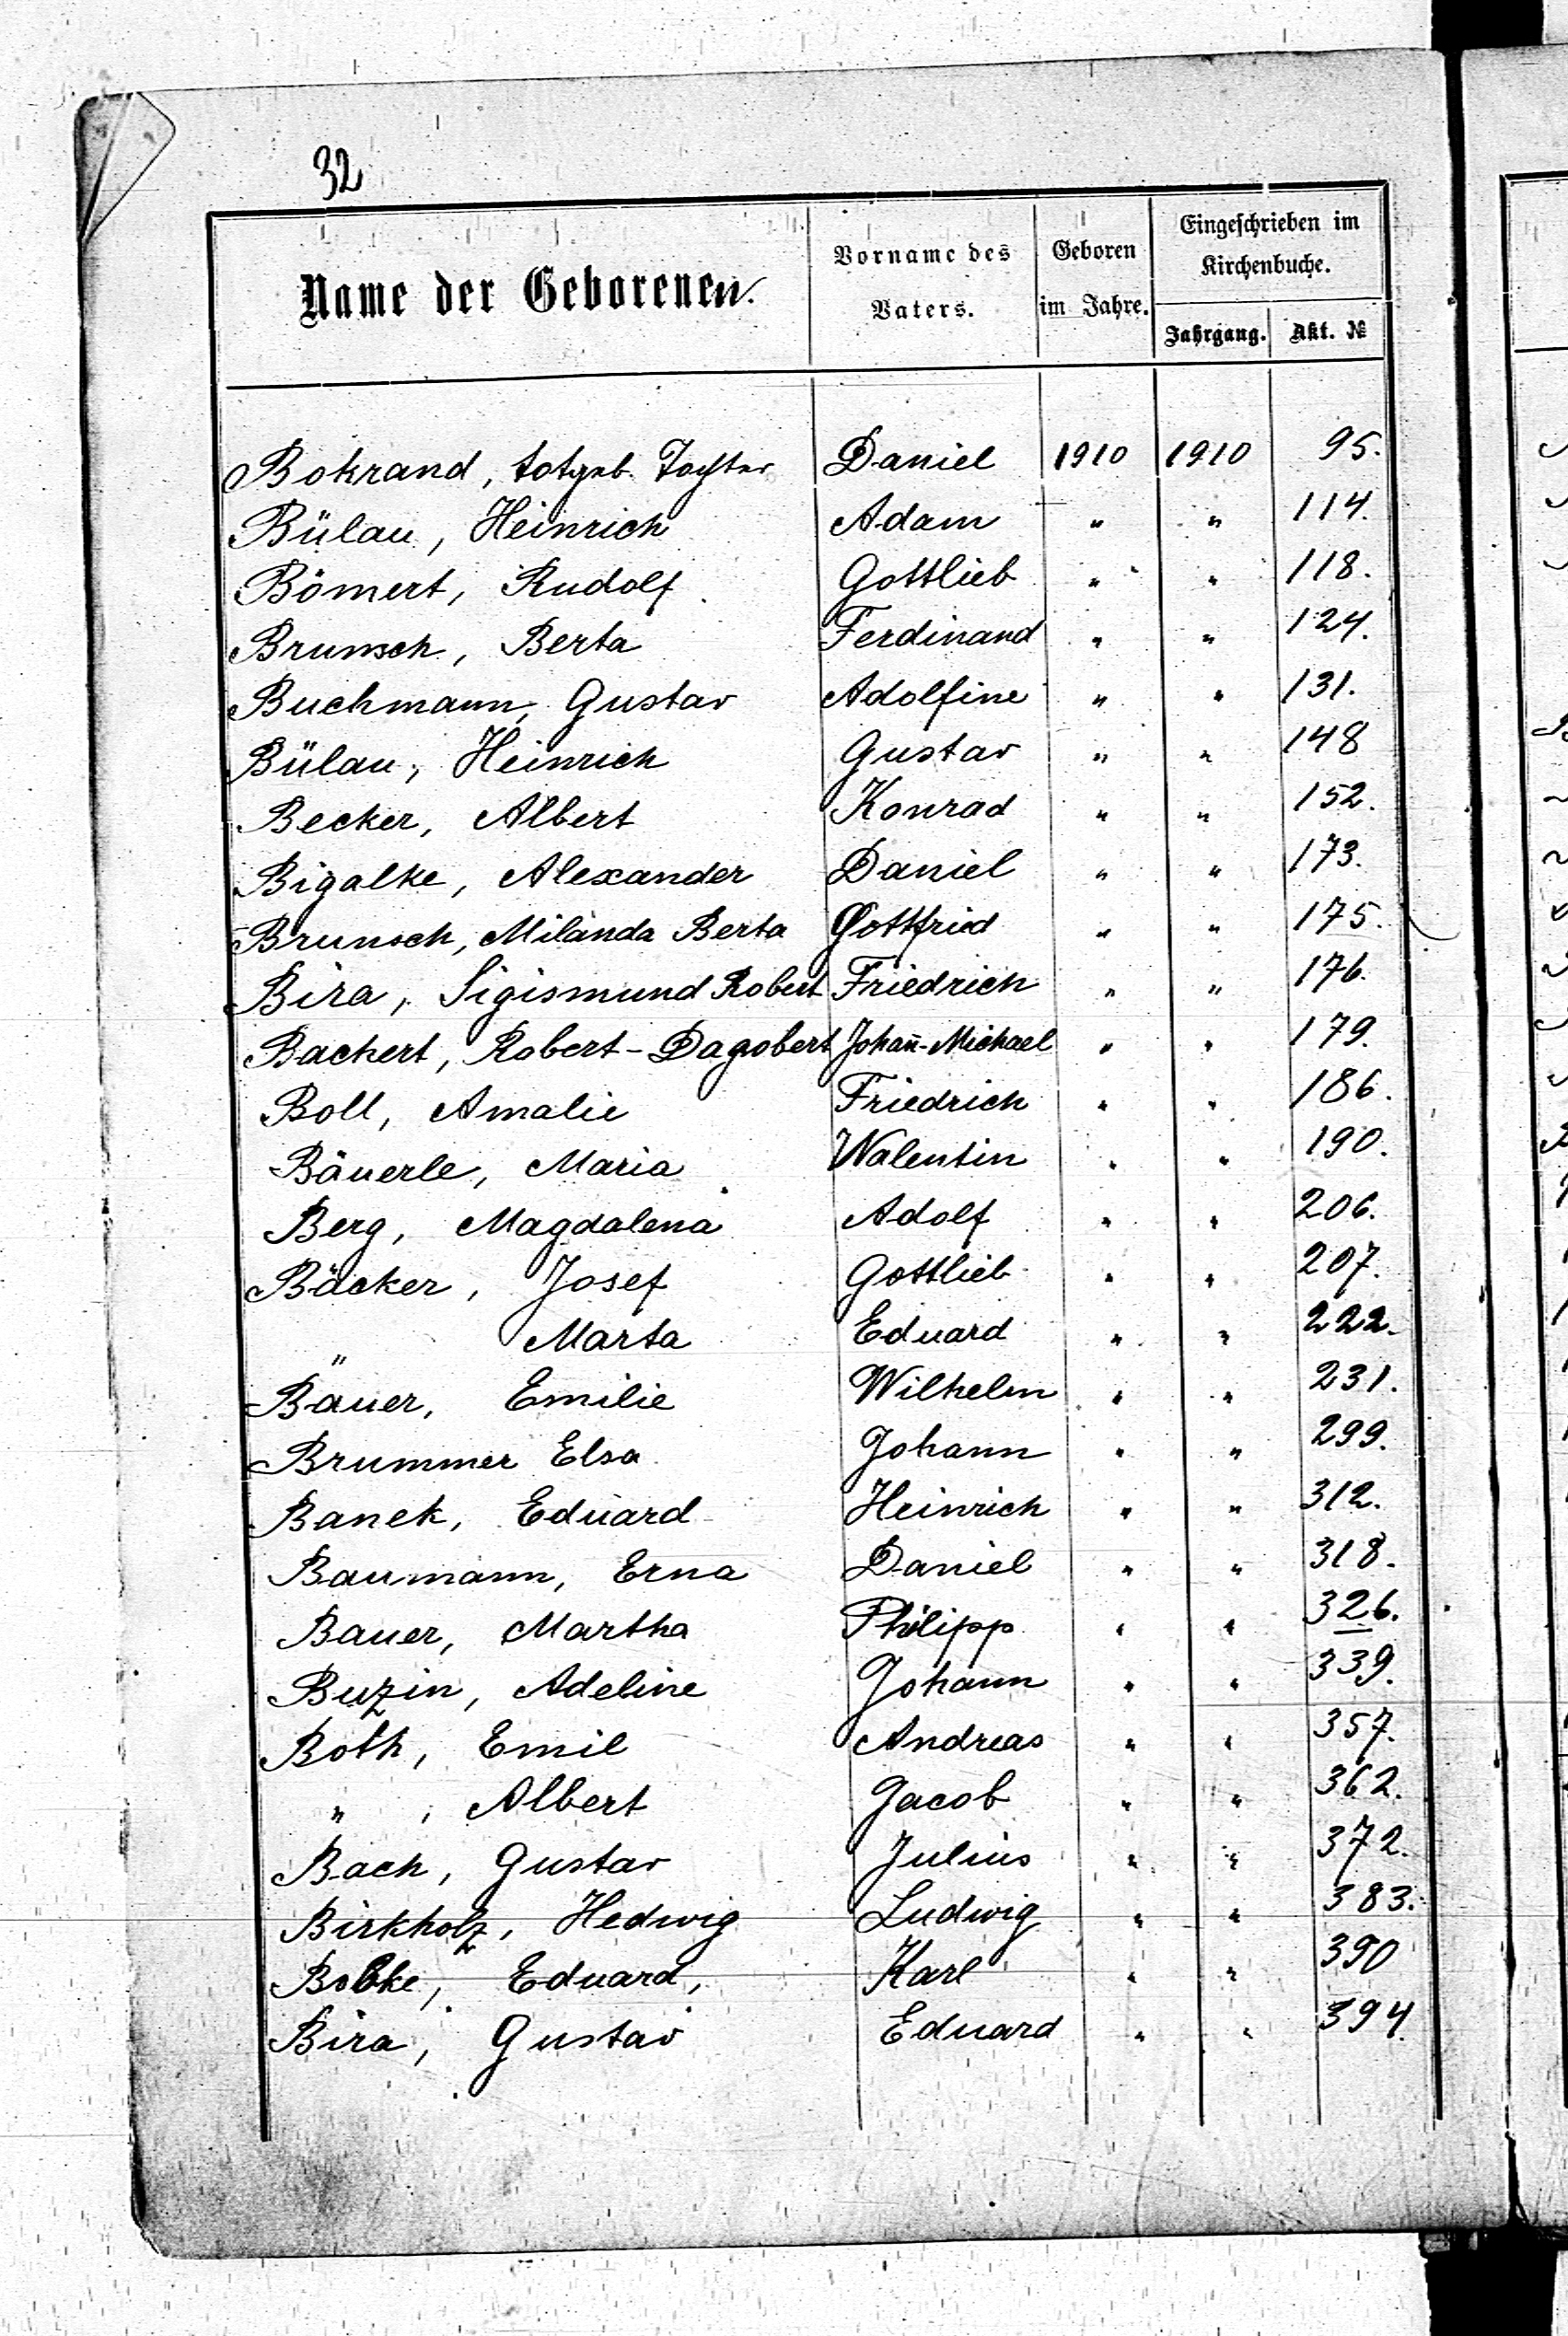 32
Name der Geborenen.
Vorname des Vaters.
Geboren im Jahre.
Eingeschrieben im Kirchenbuche.
Jahrgang. Akt. №
Bokrand, totgeb. Tochter Daniel 1910 1910 95.
Bülau, Heinrich Adam " " 114.
Bömert, Rudolf Gottlieb " " 118.
Brunsch, Berta Ferdinand " " 124.
Buchmann, Gustav Adolfine " " 131.
Bülau, Heinrich Gustav " " 148
Becker, Albert Konrad " " 152.
Bigalke, Alexander Daniel " " 173.
Brunsch, Milanda Berta Gottfried " " 175.
Bira, Sigismund Robert Friedrich " " 176.
Backert, Robert-Dagobert Johan̄-Michael " " 179.
Boll, Amalie Friedrich " " 186.
Bäuerle, Maria Walentin " " 190.
Berg, Magdalena Adolf " " 206.
Bäcker, Josef Gottlieb " " 207.
" Marta Eduard " " 222.
Bauer, Emilie Wilhelm " " 231.
Brummer Elsa Johann " " 299.
Banek, Eduard Heinrich " " 312.
Baumann, Erna Daniel " " 318.
Bauer, Martha Philipp " " 326.
Buzin, Adeline Johann " " 339.
Both, Emil Andreas " " 357.
" , Albert Jacob " " 362.
Bach, Gustav Julius " " 372.
Birkholz, Hedwig Ludwig " " 383.
Bobke, Eduard, Karl " " 390
Bira, Gustav Eduard " " 394.